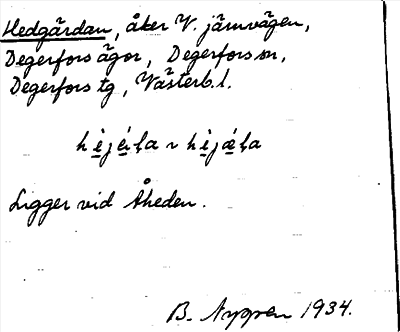 Hedgårdan, åker V. järnvägen,
Degerfors ägor, Degerfors sn,
Degerfors tg, Västerb. l.
Ligger vid Åheden.
B. 1934.